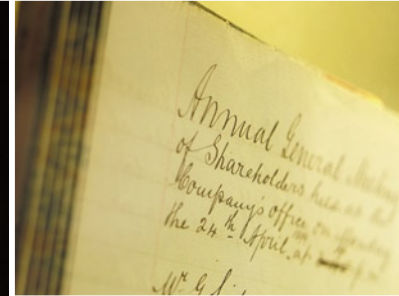 Annual General Meeting
of Shareholders held at the
Company's office on
the 24th April, at
Mr G